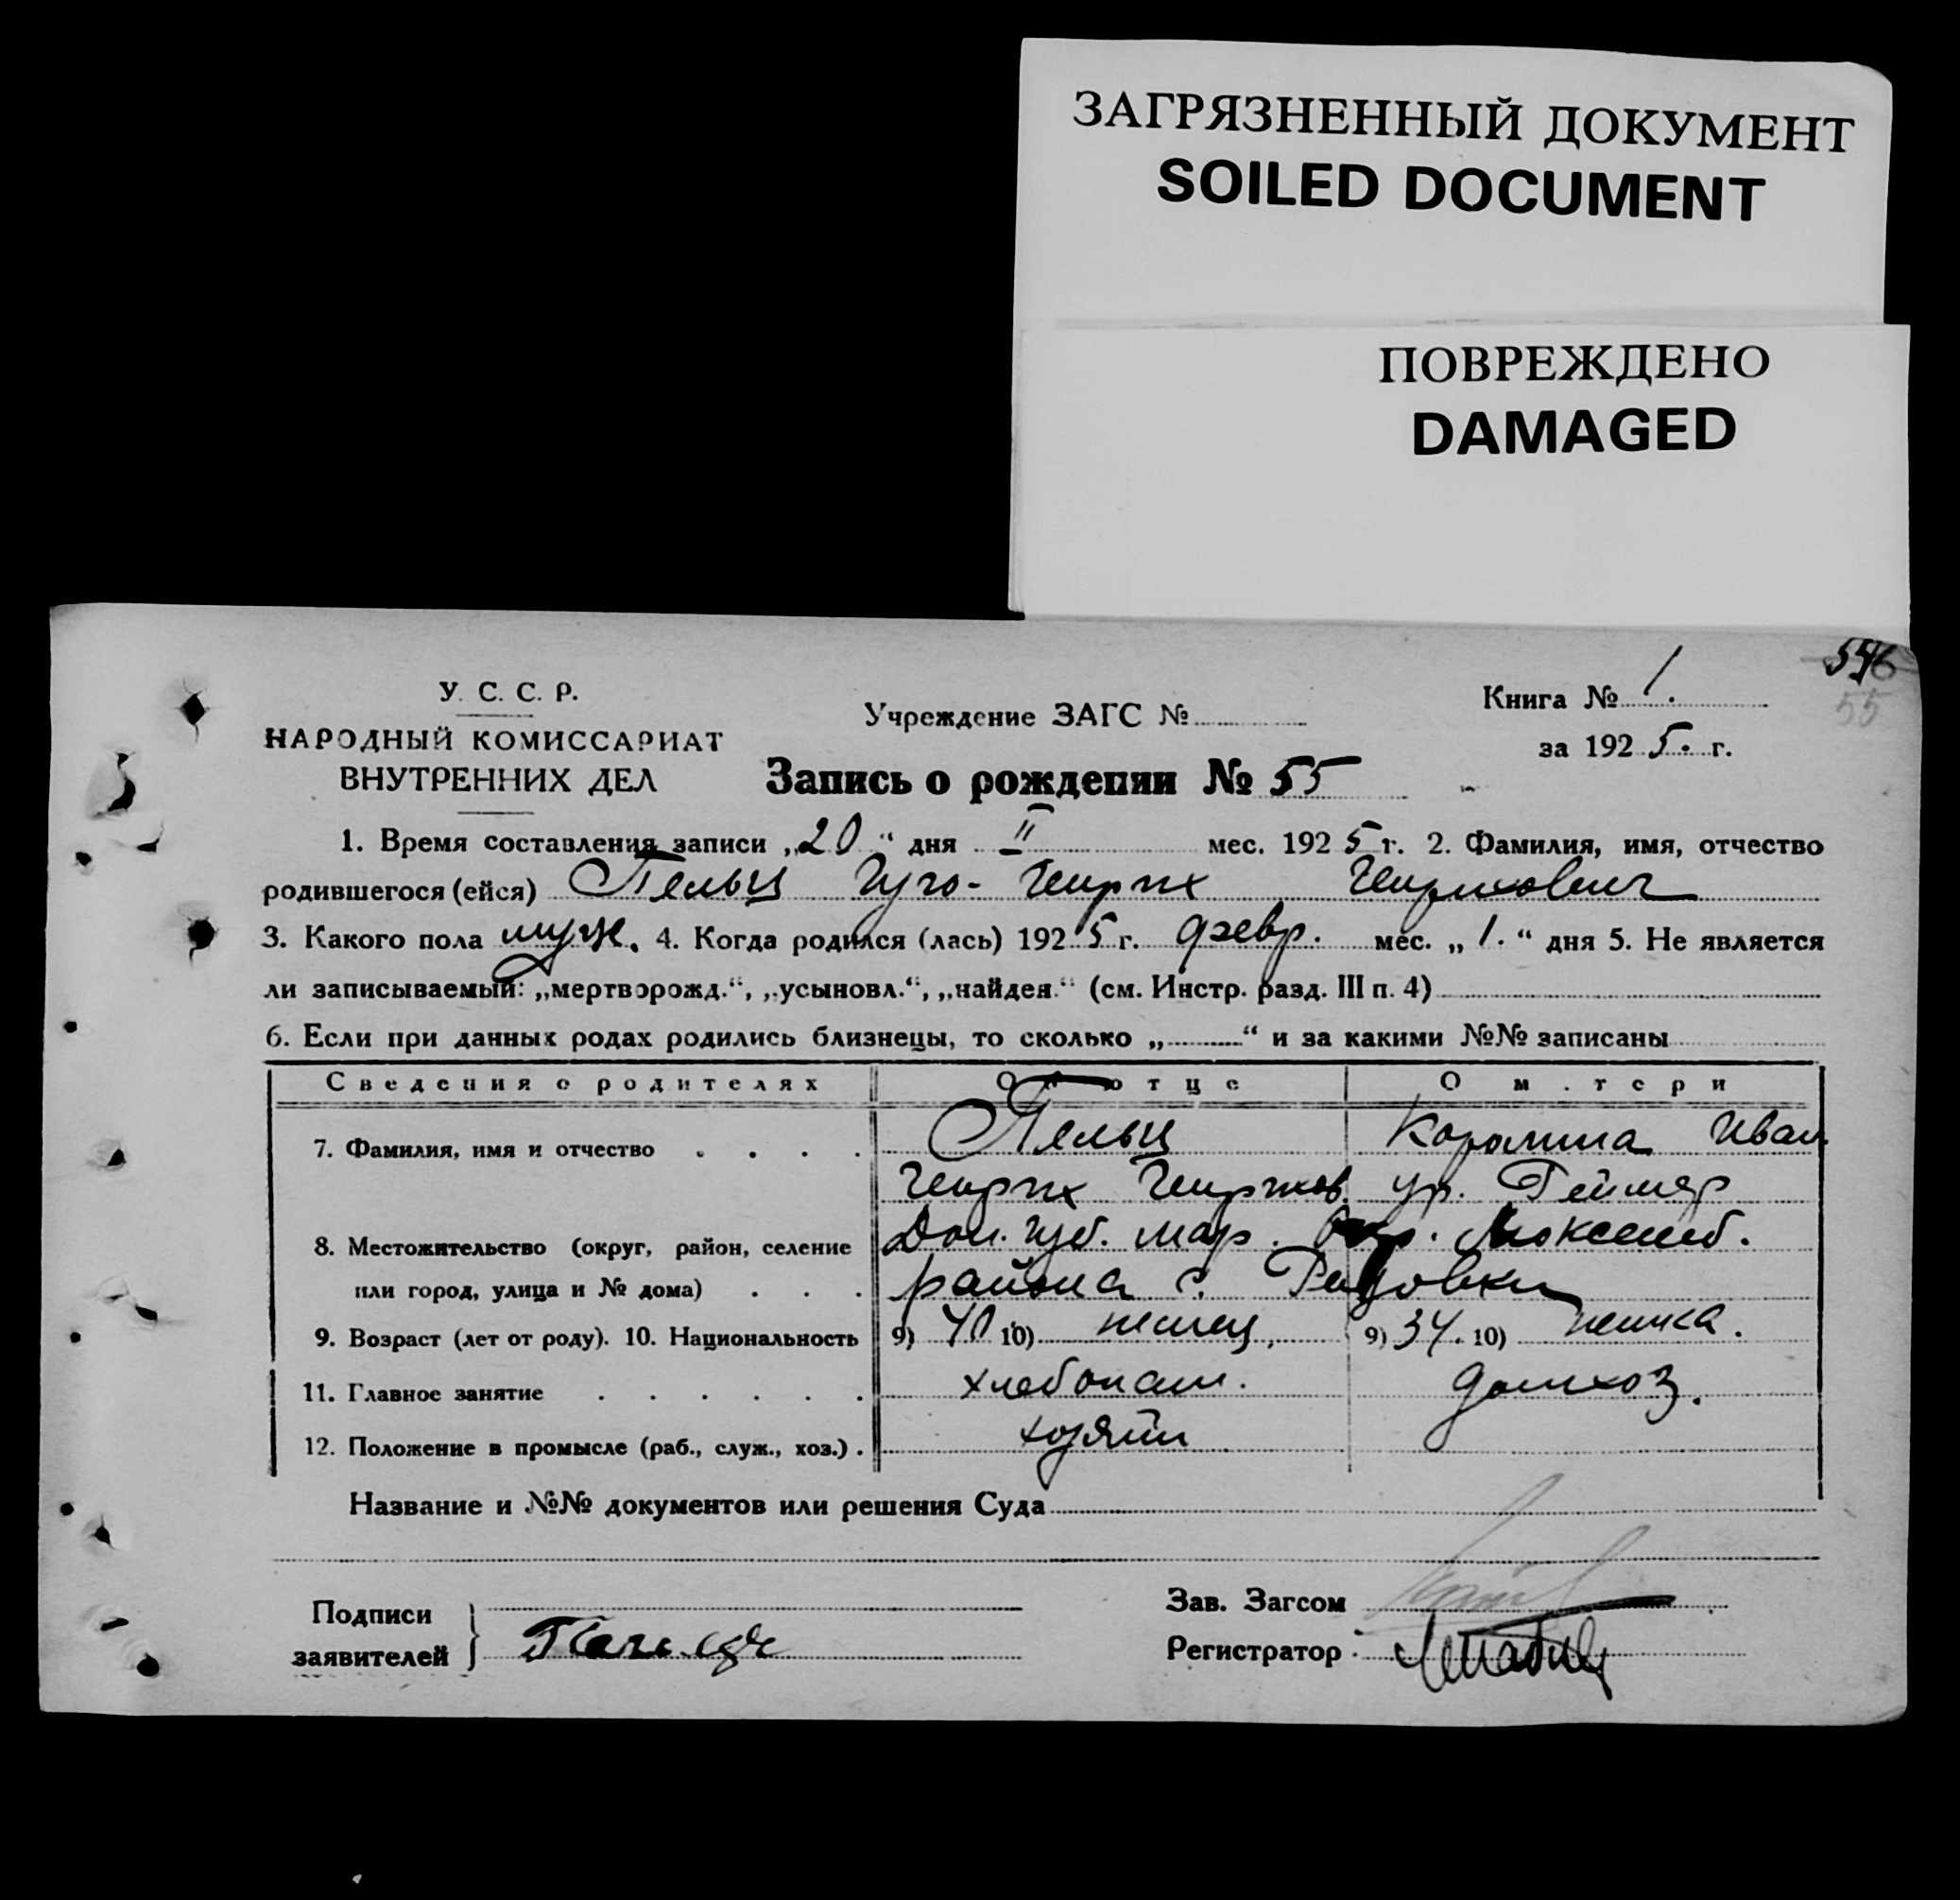 ЗАГРЯЗНЕННЫЙ ДОКУМЕНТ
SOILED DOCUMENT
ПОВРЕЖДЕНО
DAMAGED
55
У. С. С. Р.
НАРОДНЫЙ КОМИССАРИАТ
ВНУТРЕННИХ ДЕЛ
Учреждение ЗАГС №
Книга № 1.
за 1925. г.
Запись о рождении № 55
1. Время составления записи „20“ дня II мес. 1925 г. 2. Фамилия, имя, отчество
родившегося (ейся) Пельц Гуго-Генрих Генрихович
3. Какого пола муж. 4. Когда родился (лась) 1925 г. февр. мес. „1.“ дня 5. Не является
ли записываемый: „мертворожд.“, „усыновл.“, „найден.“ (см. Инстр. разд. III п. 4)
6. Если при данных родах родились близнецы, то сколько „ “ и за какими №№ записаны
Сведения о родителях Об отце О матери
7. Фамилия, имя и отчество . . . . Пельц Каролина Иван.
Генрих Генрихов. ур. Геймер
8. Местожительство (округ, район, селение Дон. губ. Мар. Окр.
или город, улица и № дома) . . . района с.
9. Возраст (лет от роду). 10. Национальность 9) 40 10) немец, 9) 34. 10) немка.
11. Главное занятие . . . . . . хлебопаш. домхоз.
12. Положение в промысле (раб., служ., хоз.) . хозяин
Название и №№ документов или решения Суда
Подписи
заявителей
Зав. Загсом
Регистратор